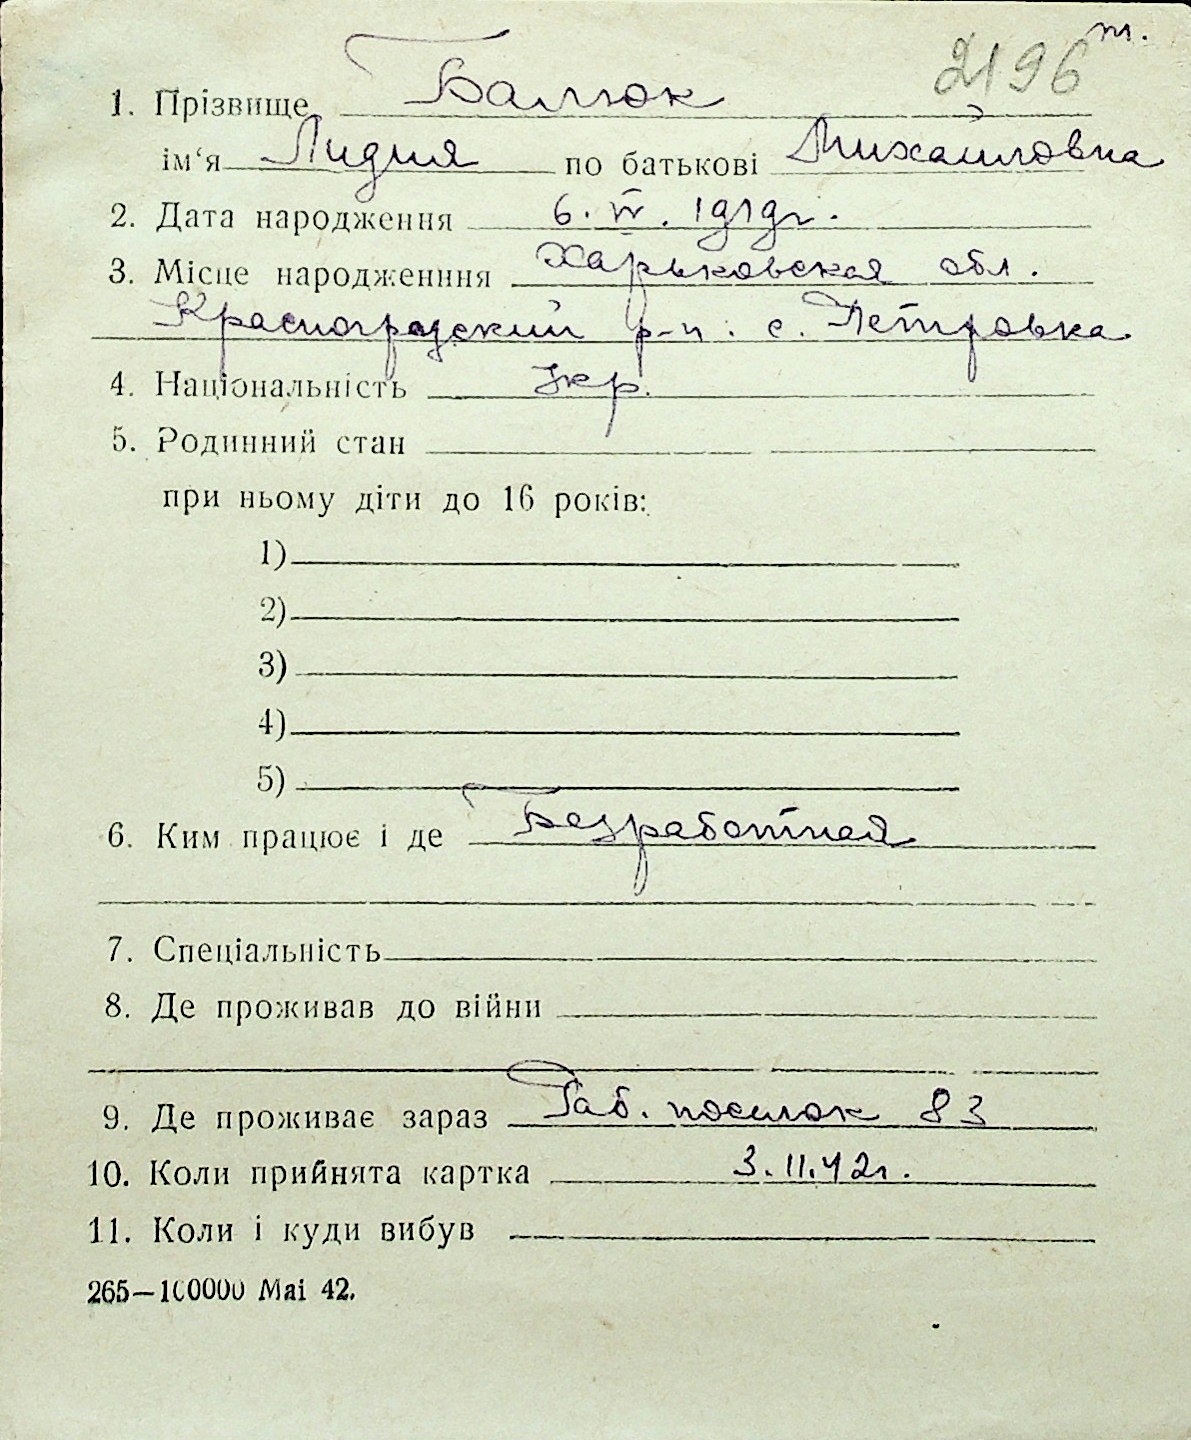 т.
2196
1. Прізвище Балюк
ім‘я Лидия по батькові Михайловна
2. Дата народження 6. IV. 1919г.
3. Місце народженння Харьковская обл.
Красноградский р-н. с. Петровка
4. Національність Укр.
5. Родинний стан
при ньому діти до 16 років:
1)
2)
3)
4)
5)
6. Ким працює і де Безработная
7. Спеціальність
8. Де проживав до війни
9. Де проживає зараз Раб. поселок 83
10. Коли прийнята картка 3.II.42г.
11. Коли і куди вибув
265—100000 Mai 42.